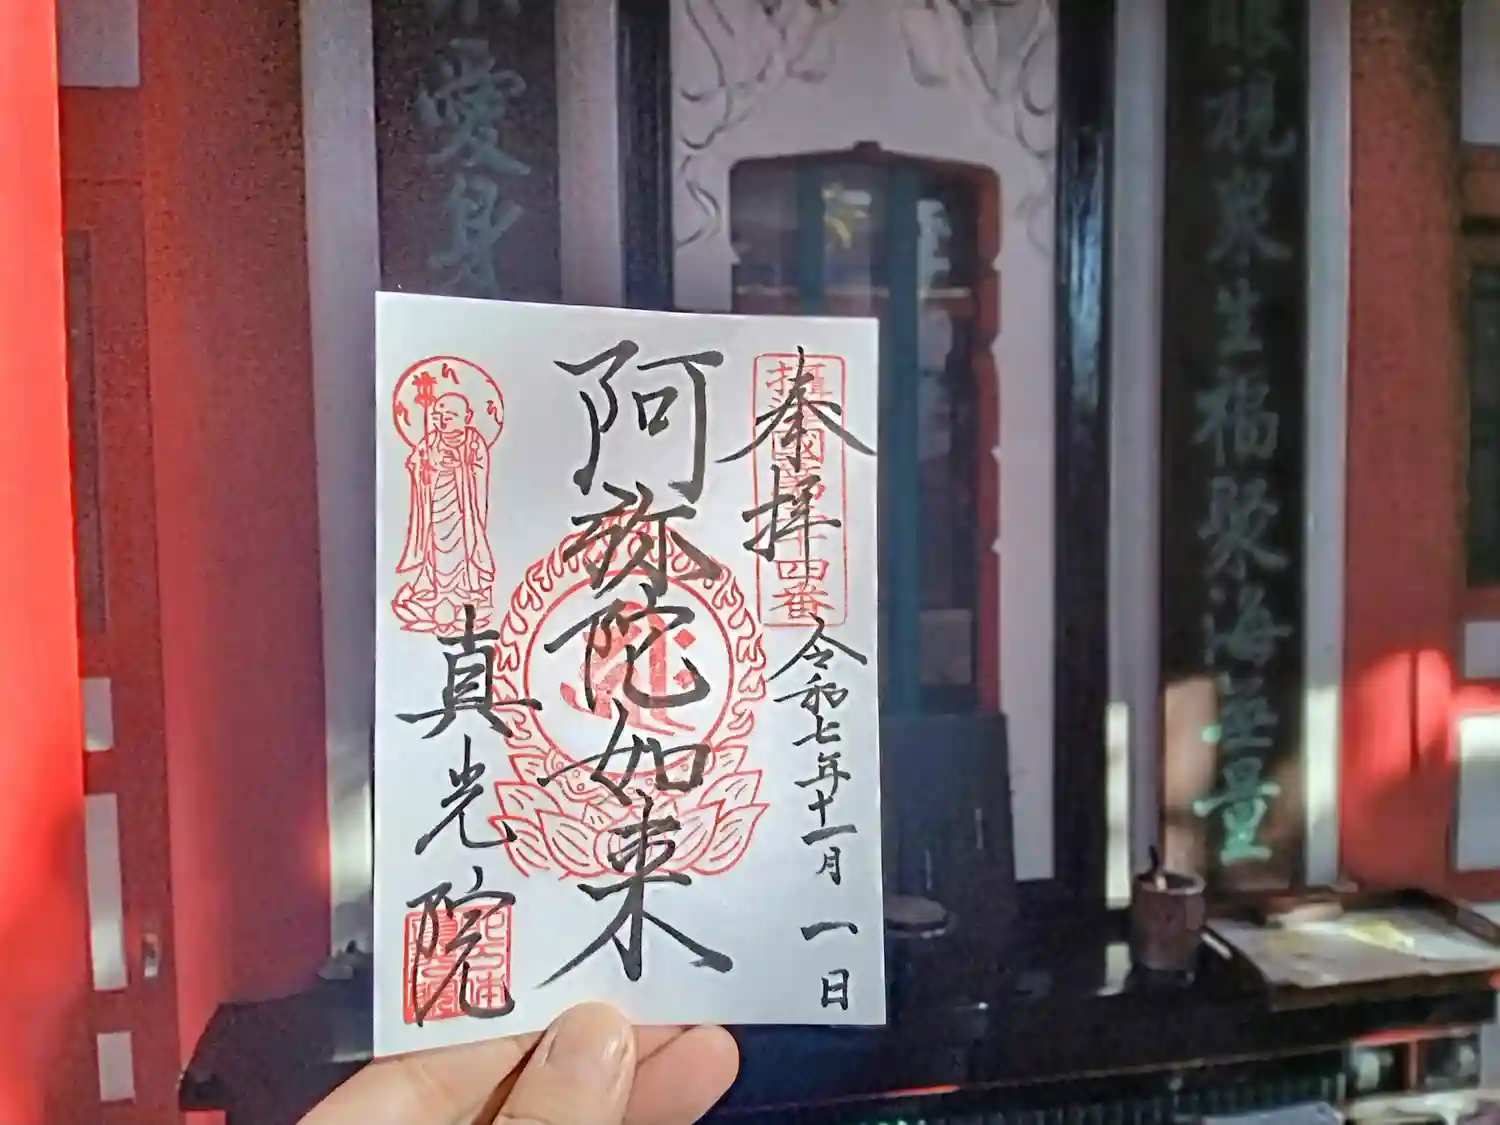 眼視衆生福聚海無量
愛身
奉拝
令和七年十一月一日
阿弥陀如来
真光院